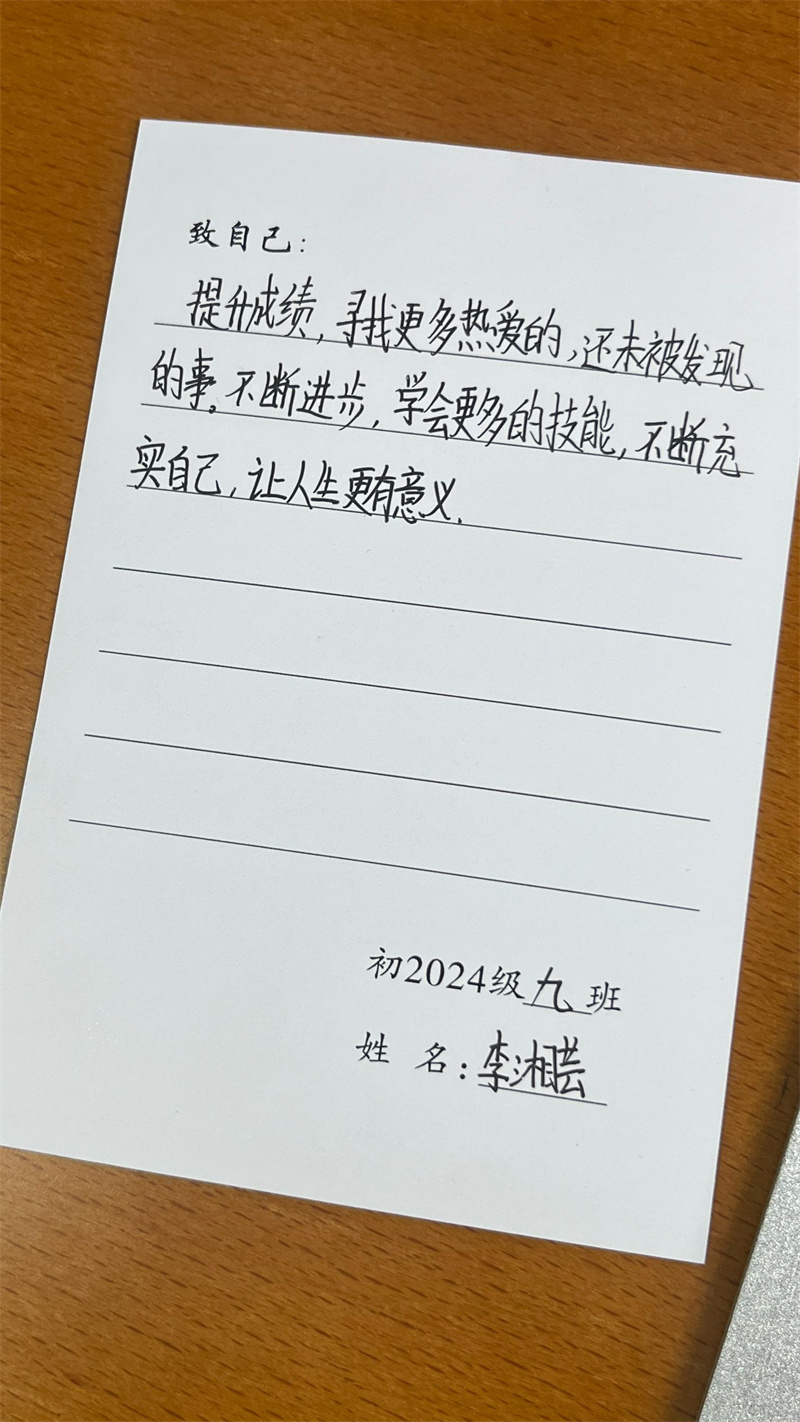 致自己：
提升成绩，寻找更多热爱的，还未被发现
的事。不断进步，学会更多的技能，不断充
实自己，让人生更有意义.
初2024级九班
姓 名：李湘芸